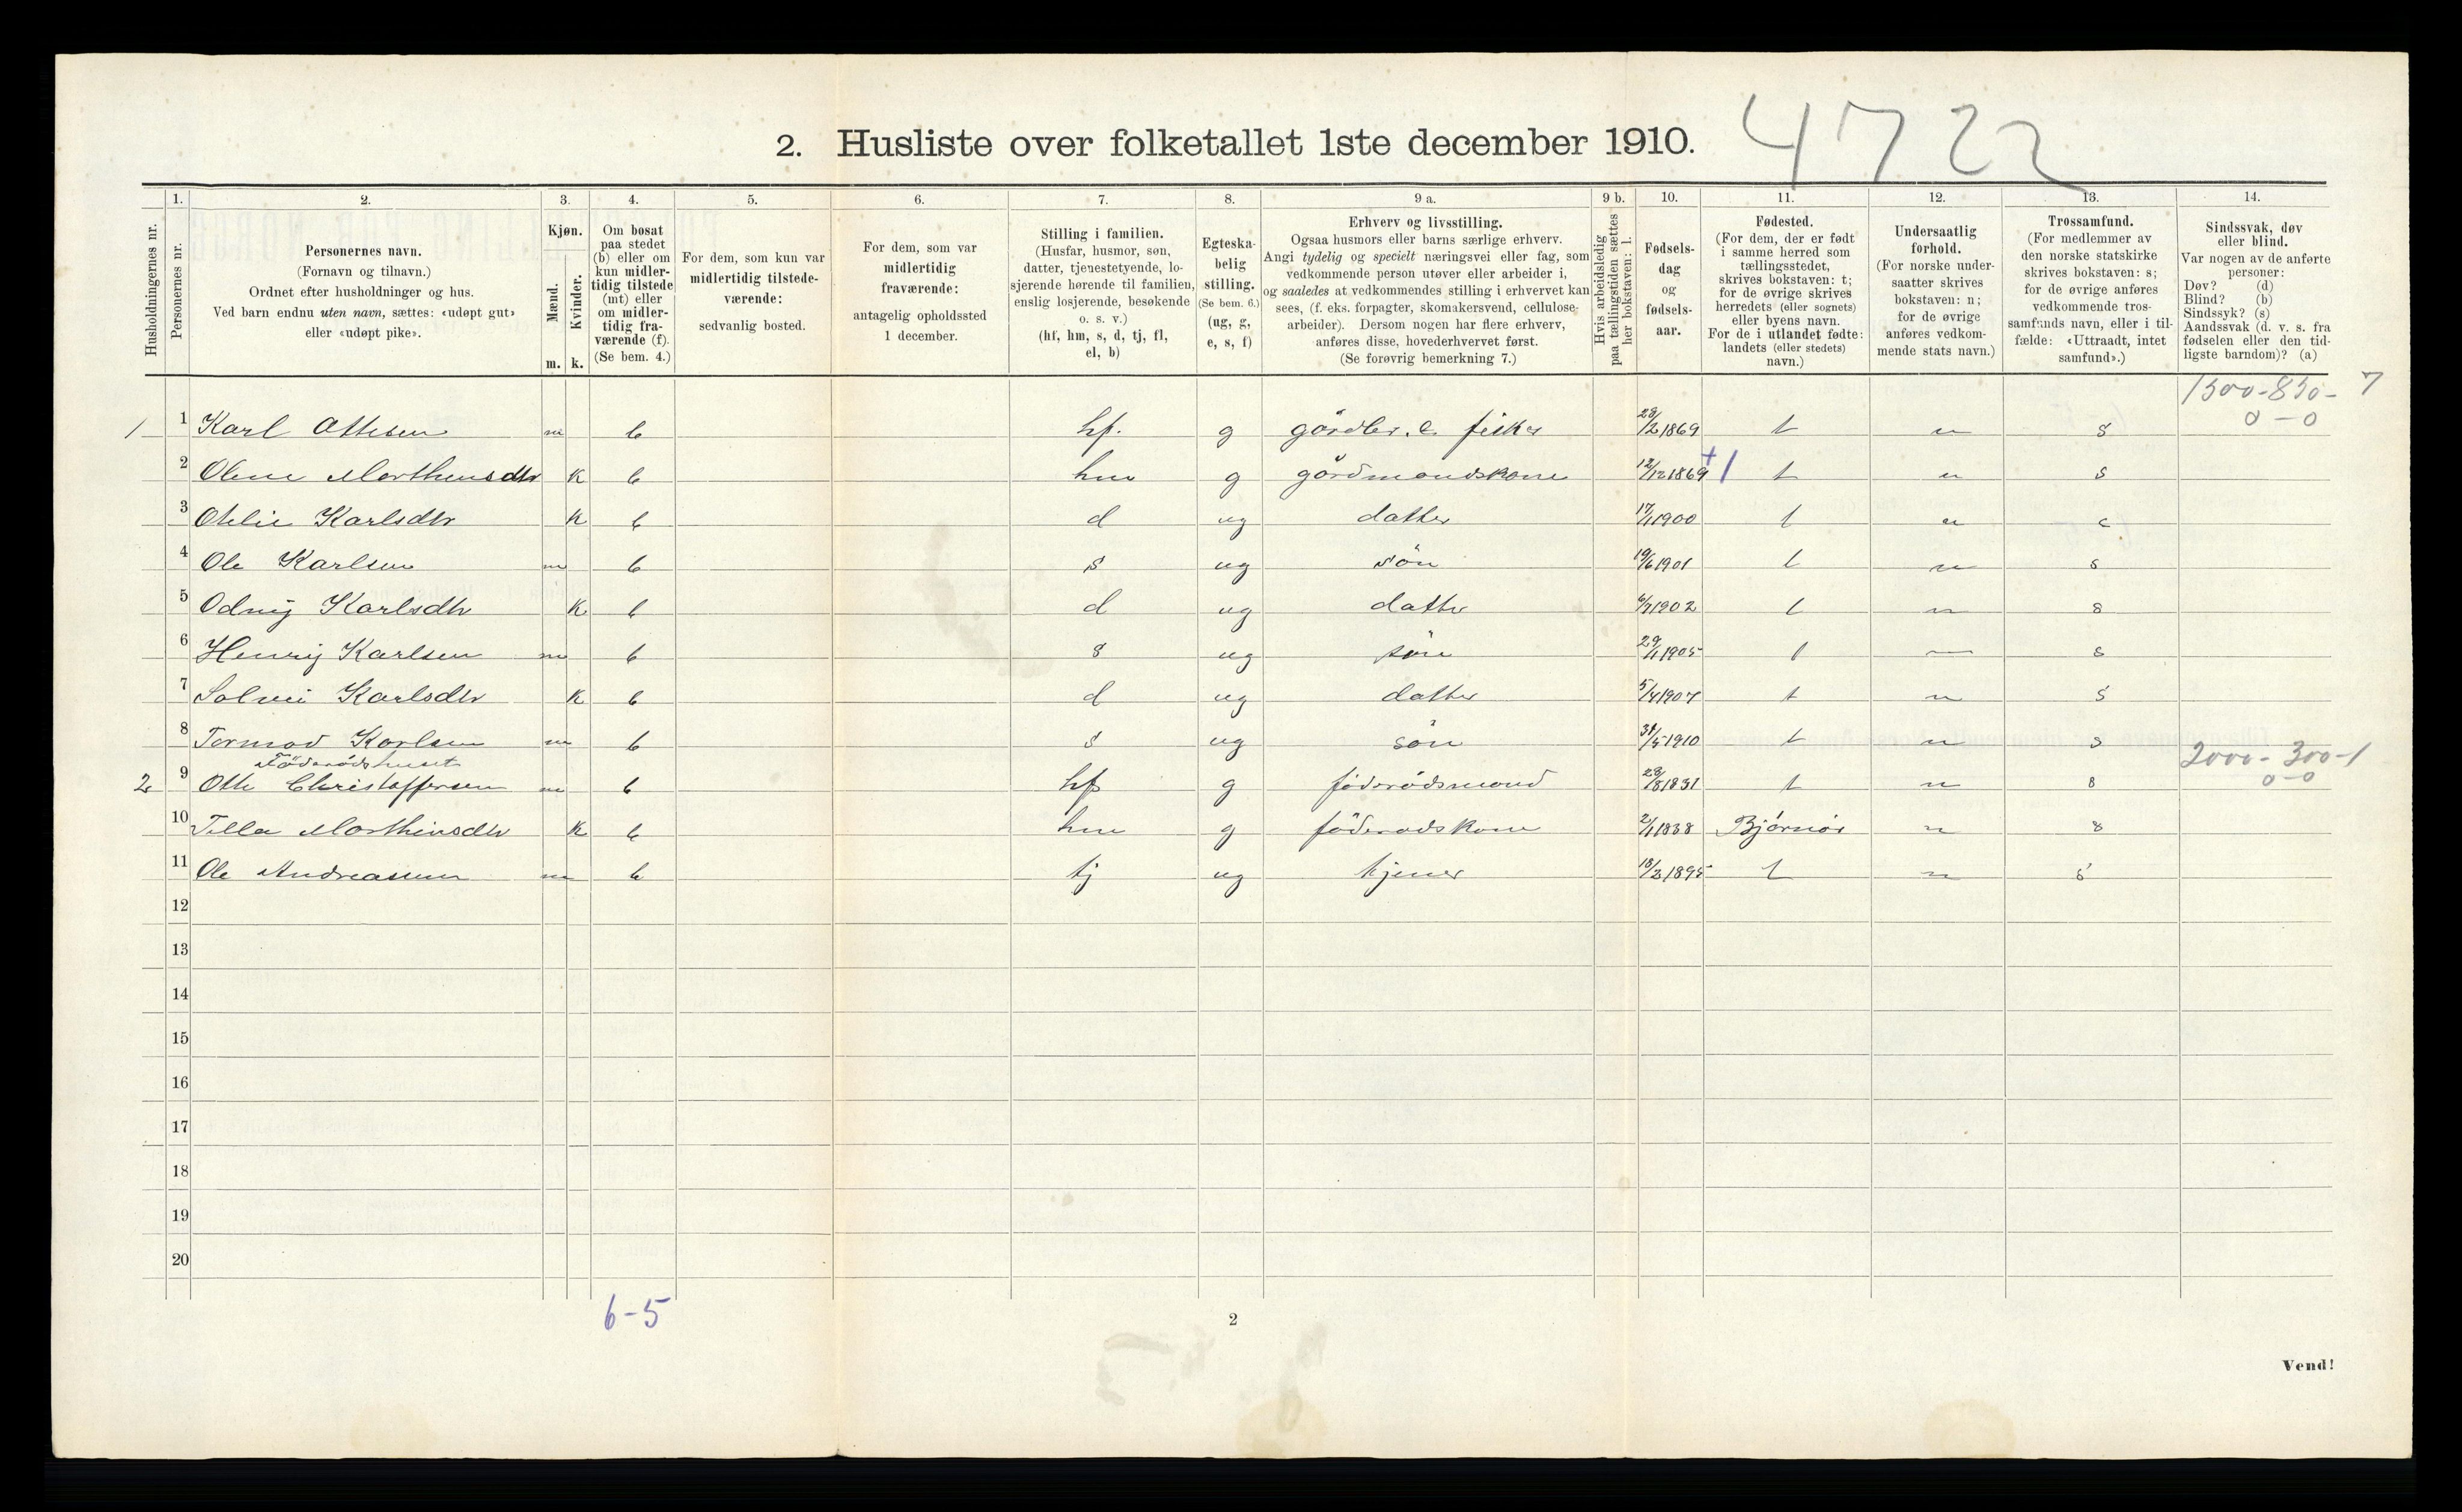 2. Husliste over folketallet 1ste december 1910. 4722
Husholdningernes nr.
1. Personernes nr.
2. Personernes navn. (Fornavn og tilnavn.) Ordnet efter husholdninger og hus. Ved barn endnu uten navn, sættes: «udøpt gut» eller «udøpt pike».
3. Kjøn. Mænd. m. Kvinder. k.
4. Om bosat paa stedet (b) eller om kun midlertidig tilstede (mt) eller om midlertidig fraværende (f). (Se bem. 4.)
5. For dem, som kun var midlertidig tilstedeværende: sedvanlig bosted.
6. For dem, som var midlertidig fraværende: antagelig opholdssted 1 december.
7. Stilling i familien. (Husfar, husmor, søn, datter, tjenestetyende, losjerende hørende til familien, enslig losjerende, besøkende o. s. v.) (hf, hm, s, d, tj, fl, el, b)
8. Egteskabelig stilling. (Se bem. 6.) (ug, g, e, s, f)
9 a. Erhverv og livsstilling. Ogsaa husmors eller barns særlige erhverv. Angi tydelig og specielt næringsvei eller fag, som vedkommende person utøver eller arbeider i, og saaledes at vedkommendes stilling i erhvervet kan sees, (f. eks. forpagter, skomakersvend, cellulosearbeider). Dersom nogen har flere erhverv, anføres disse, hovederhvervet først. (Se forøvrig bemerkning 7.)
9 b. Hvis arbeidsledig paa tællingstiden sættes her bokstaven: l.
10. Fødselsdag og fødselsaar.
11. Fødested. (For dem, der er født i samme herred som tællingsstedet, skrives bokstaven: t; for de øvrige skrives herredets (eller sognets) eller byens navn. For de i utlandet fødte: landets (eller stedets) navn.)
12. Undersaatlig forhold. (For norske undersaatter skrives bokstaven: n; for de øvrige anføres vedkommende stats navn.)
13. Trossamfund. (For medlemmer av den norske statskirke skrives bokstaven: s; for de øvrige anføres vedkommende trossamfunds navn, eller i tilfælde: «Uttraadt, intet samfund».)
14. Sindssvak, døv eller blind. Var nogen av de anførte personer: Døv? (d) Blind? (b) Sindssyk? (s) Aandssvak (d. v. s. fra fødselen eller den tidligste barndom)? (a)
1500-850-7
0-0
1 1 Karl Ottesen m b hf. g gårdbr. e. fisker 28/2 1869 t n s
2 Olene Morthensdtr k b hm g gårdmandskone 12/12 1869 + 1 t n s
3 Otelie Karlsdtr k b d ug datter 17/1 1900 t n s
4 Ole Karlsen m b s ug sön 19/6 1901 t n s
5 Odny Karlsdtr k b d ug datter 6/7 1902 t n s
6 Henrij Karlsen m b s ug sön 29/1 1905 t n s
7 Solvei Karlsdtr k b d ug datter 5/4 1907 t n s
8 Tormod Karlsen m b s ug sön 31/5 1910 t n s
Föderådshuset
2000-300-1
0-0
2 9 Otte Christoffersen m b hf g föderådsmand 28/8 1831 t n s
10 Tella Morthinsdtr k b hm g föderadskone 2/1 1838 Bjørnør n s
11 Ole Andreassen m b tj ug tjener 18/2 1895 t n s
12
13
14
15
16
17
18
19
20
6-5
2
Vend!